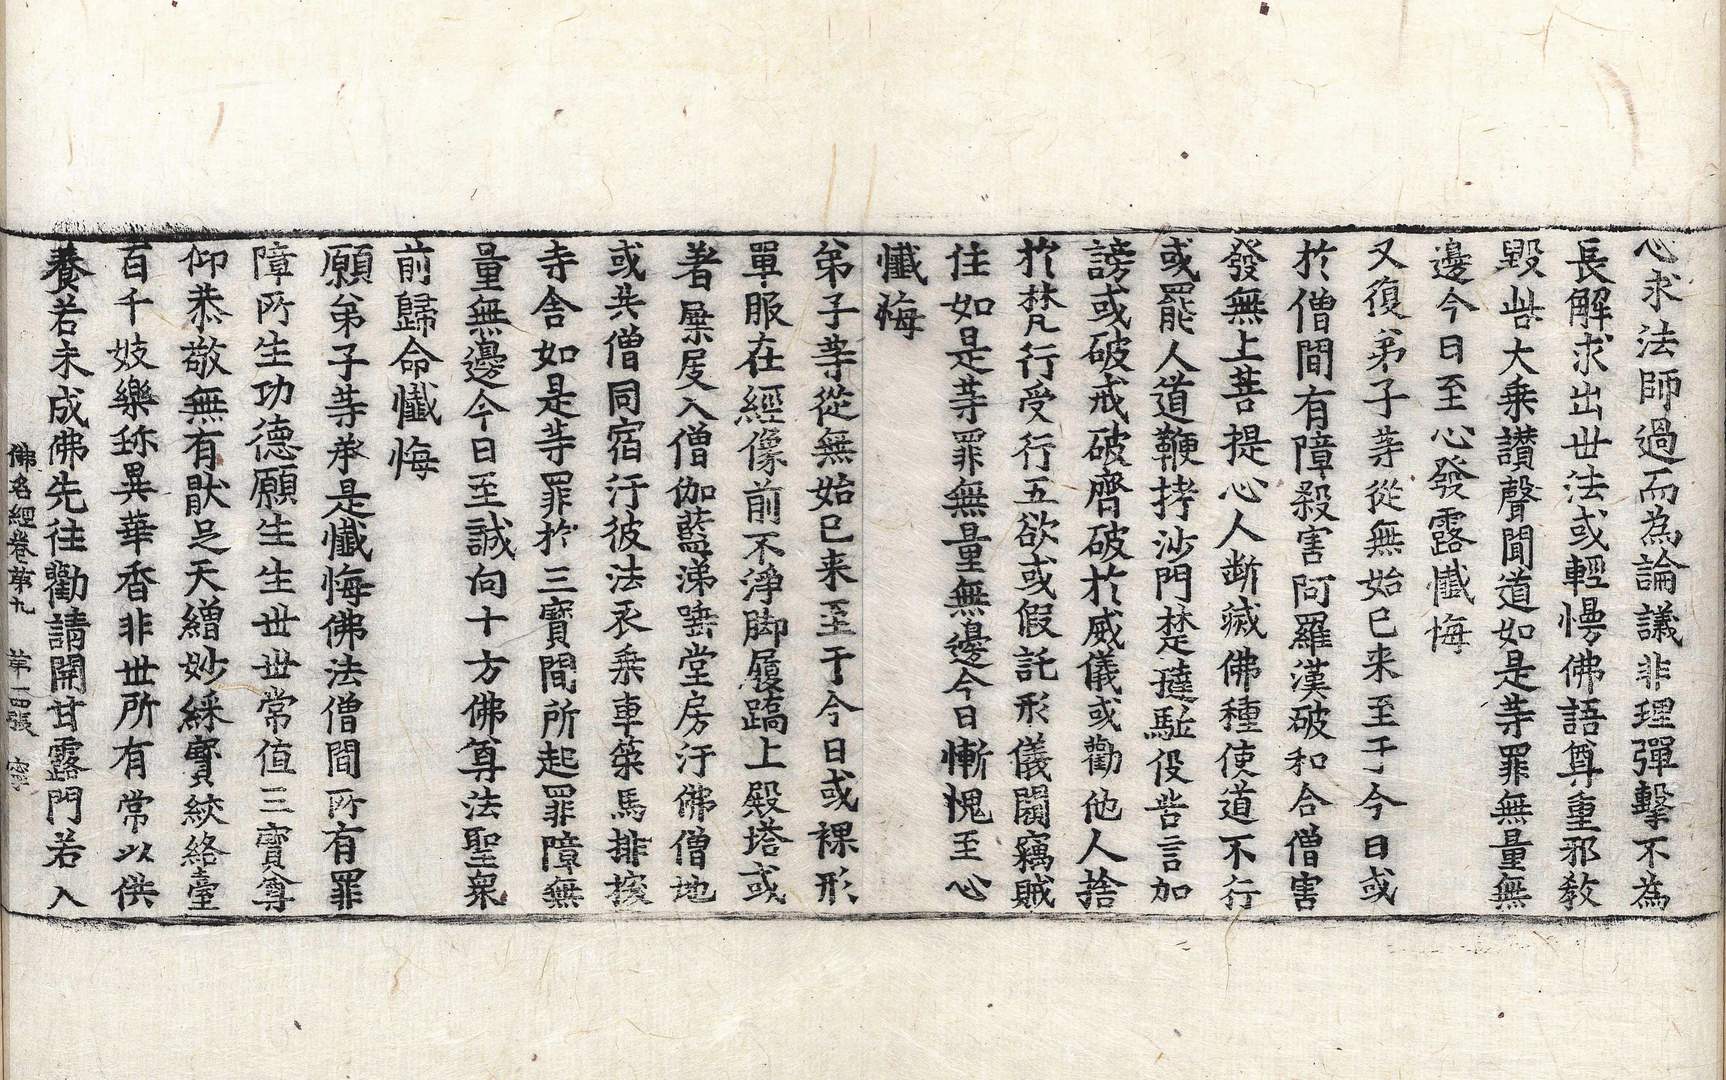 心求法師過而為論議非理彈擊不為
長解求出世法或輕慢佛語尊重邪教
毀呰大乗讃聲聞道如是等罪無量無
邊今日至心發露懺悔
又復弟子等從無始已来至于今日或
於僧間有障殺害阿羅漢破和合僧害
發無上菩提心人断滅佛種使道不行
或罷人道鞭拷沙門楚撻駈伇苦言加
謗或破戒破齋破於威儀或勸他人捨
於梵行受行五欲或假託形儀闚竊賊
住如是等罪無量無邊今日慚愧至心
懺悔
弟子等從無始已来至于今日或裸形
單服在經像前不淨脚履蹋上殿塔或
著屧屐入僧伽藍涕唾堂房汙佛僧地
或共僧同宿汙彼法衣乗車䇿馬排揬
寺舎如是等罪於三寶間所起罪障無
量無邊今日至誠向十方佛尊法聖衆
前歸命懺悔
願弟子等承是懺悔佛法僧間所有罪
障所生功德願生生世世常值三寶尊
仰恭敬無有猒足天繒妙綵寳絞絡臺
百千妓樂珎異華香非世所有常以供
養若未成佛先往勸請開甘露門若入
佛名經卷第九　第一四張